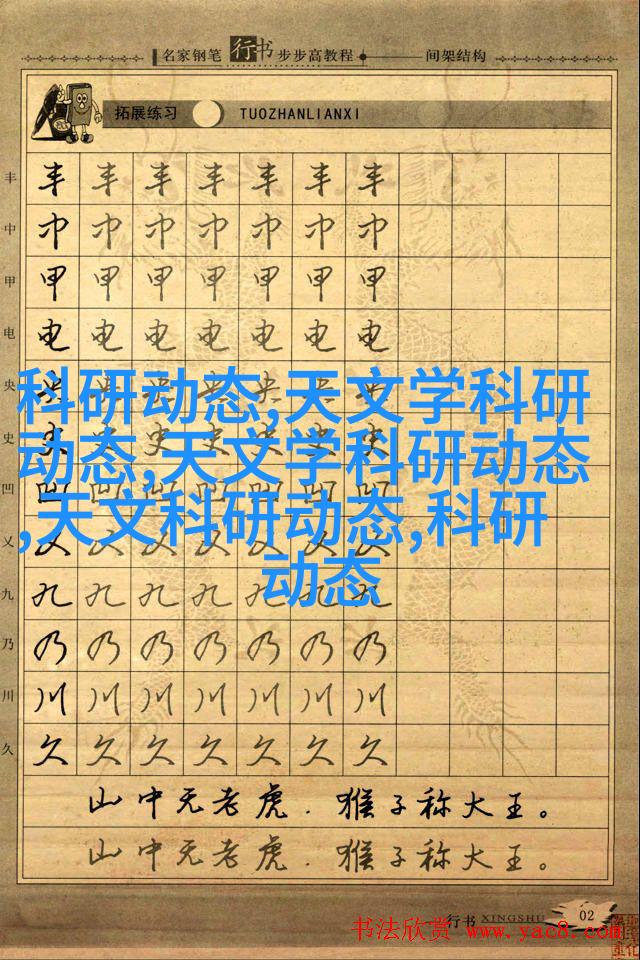 名家钢笔行书步步高教程 间架结构
拓展练习 TUOZHANLIANXI
丰 丰 丰 丰 丰 丰 丰 丰
中 中 中 中 中 中 中 中
甲 甲 甲 甲 甲 甲 甲 甲
电 电 电 电 电 电 电 电
央 央 央 央 央 央 央 央
科研动态,天文学科研
史 史 史 史 史 史 史 史
动态,天文学科研动态
凹 凹 凹 凹 凹 凹 凹 凹
,天文科研动态,科研
乂 乂 乂 乂 乂 乂 乂 乂
动态
九 九 九 九 九 九 九 九
乃 乃 乃 乃 乃 乃 乃 乃
川 川 川 川 川 川 川 川
久 久 久 久 久 久 久 久
山中无老虎.猴子称大王。
山中无老虎.猴子称大王。
行书 XINGSHU 02
书法欣赏 www.yac8.com